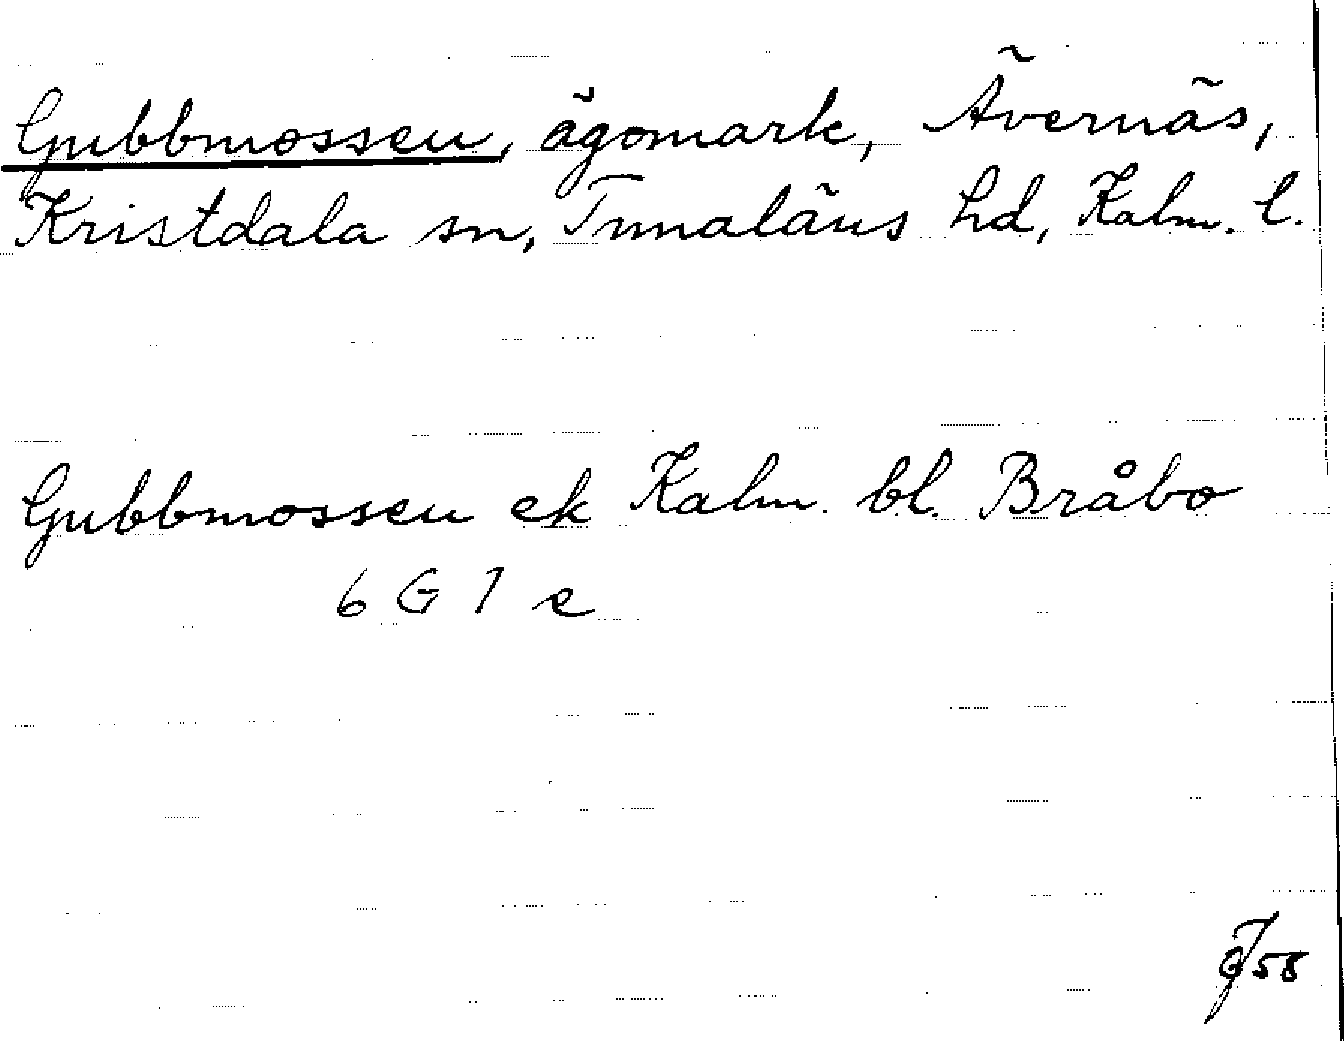 Gubbmossen, ägomark, Ävernäs,
Kristdala sn, Tunaläns hd, Kalm. l.
Gubbmossen ek Kalm. bl. Bråbo
6 G 7 e
58